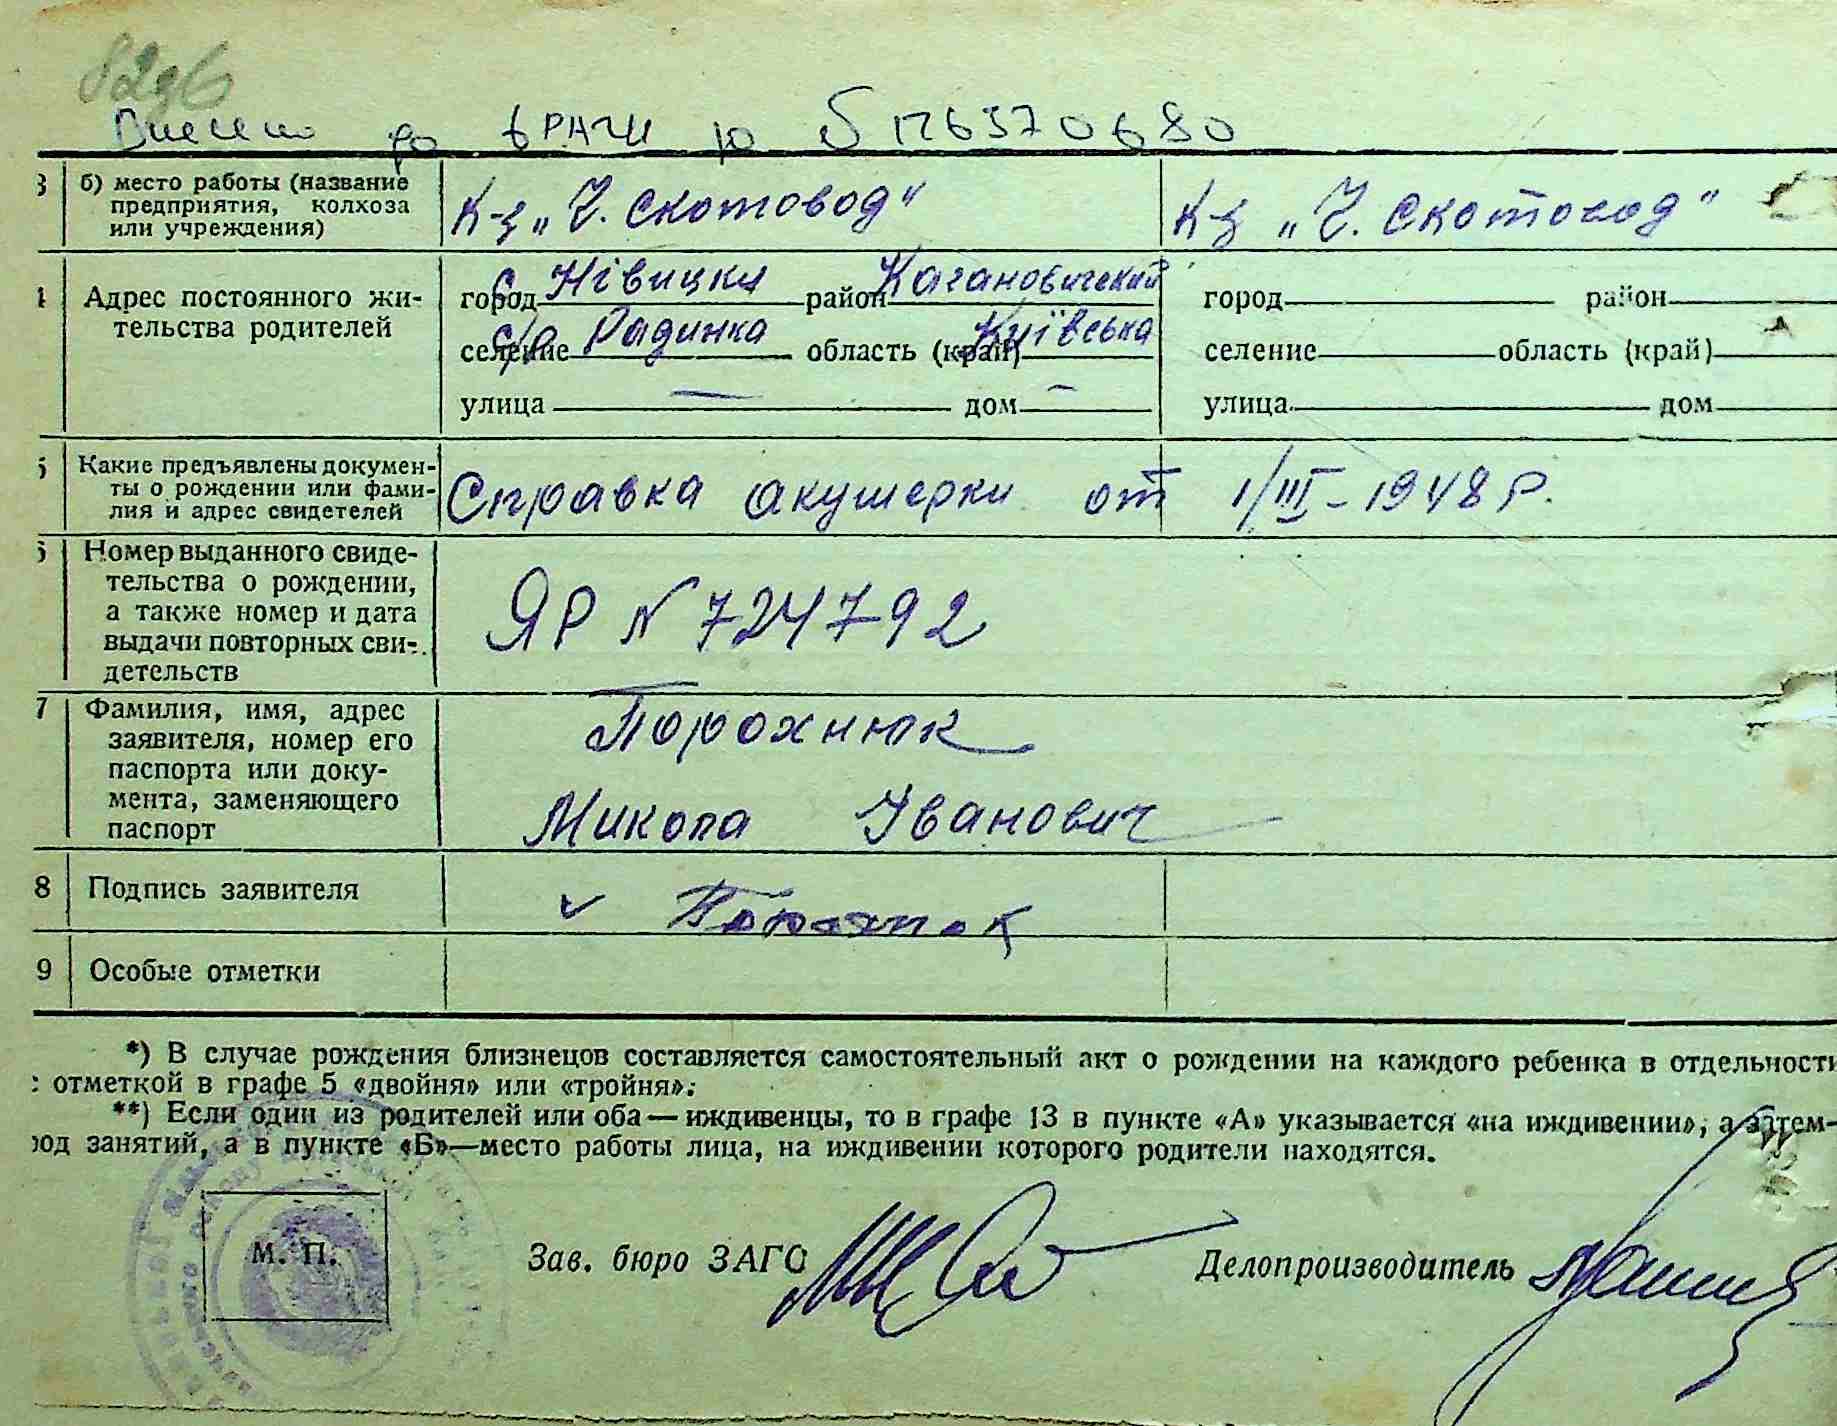 82зб
Внесено до ДРАЦС
3 б) место работы (название
предприятия, колхоза
или учреждения)
К-з „Ч. Скотовод“ К-з „Ч. Скотовод“
4 Адрес постоянного жи-
тельства родителей
город с. Нівицки район Кагановический город район
селение с/р Радинка область (край) Київська селение область (край)
улица — дом — улица дом
5 Какие предъявлены докумен-
ты о рождении или фами-
лия и адрес свидетелей
Справка акушерки от 1/III-1948 р.
6 Номер выданного свиде-
тельства о рождении,
а также номер и дата
выдачи повторных сви-
детельств
ЯР N 724792
7 Фамилия, имя, адрес
заявителя, номер его
паспорта или доку-
мента, заменяющего
паспорт
Порохнюк
Микола Іванович
8 Подпись заявителя
9 Особые отметки
*) В случае рождения близнецов составляется самостоятельный акт о рождении на каждого ребенка в отдельности
с отметкой в графе 5 «двойня» или «тройня».
**) Если один из родителей или оба—иждивенцы, то в графе 13 в пункте «А» указывается «на иждивении», а затем—
род занятий, а в пункте «Б»—место работы лица, на иждивении которого родители находятся.
М. П. Зав. бюро ЗАГС Делопроизводитель